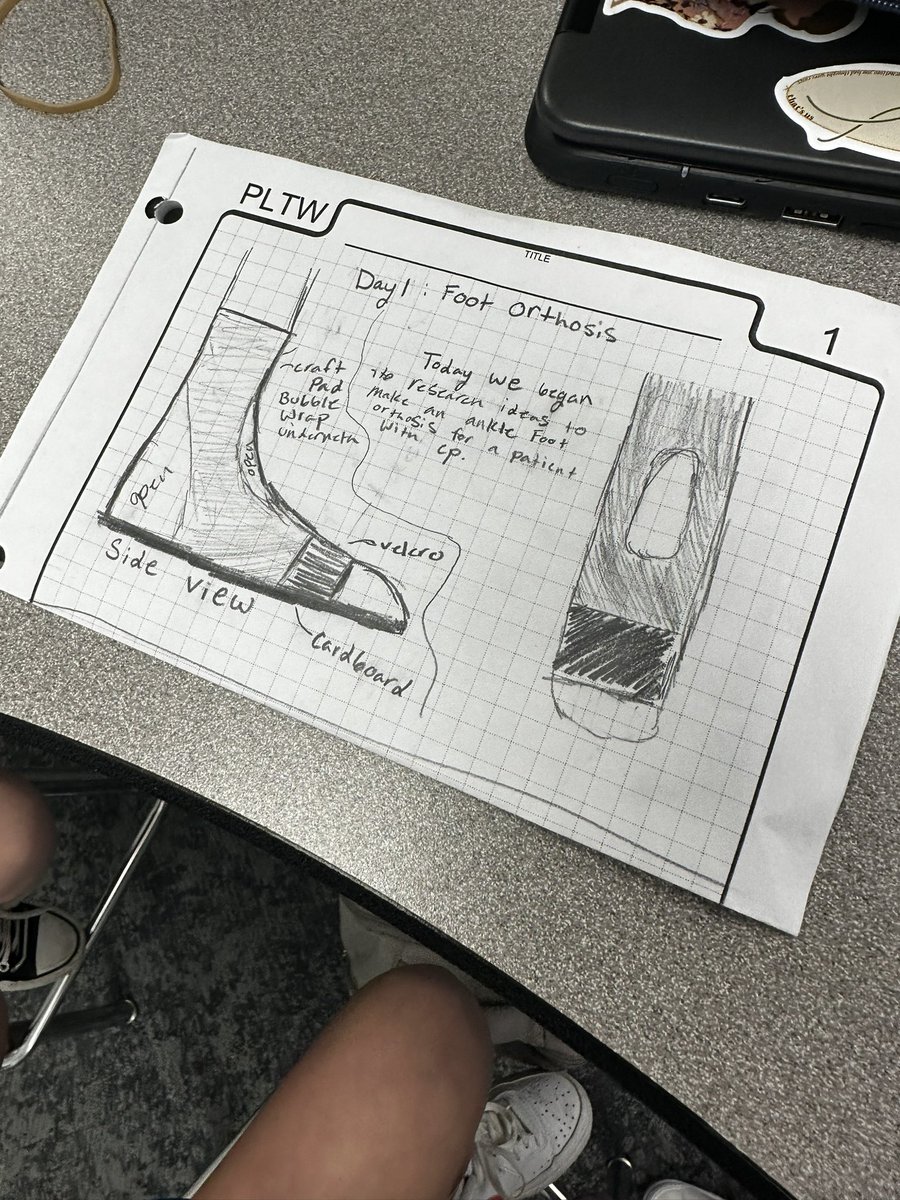 PLTW
TITLE
1
Day 1 : Foot orthosis
Today we began
to research ideas to
make an ankle Foot
orthosis for a patient
with cp.
craft
Pad
Bubble
wrap
underneath
open
open
velcro
Side view
Cardboard
that's us